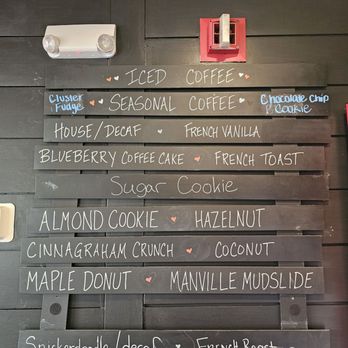 ICED COFFEE
Cluster Fudge SEASONAL COFFEE Chocolate Chip Cookie
HOUSE/DECAF FRENCH VANILLA
BLUEBERRY COFFEE CAKE FRENCH TOAST
Sugar Cookie
ALMOND COOKIE HAZELNUT
CINNAGRAHAM CRUNCH COCONUT
MAPLE DONUT MANVILLE MUDSLIDE
Snickerdoodle/decaf French Roast